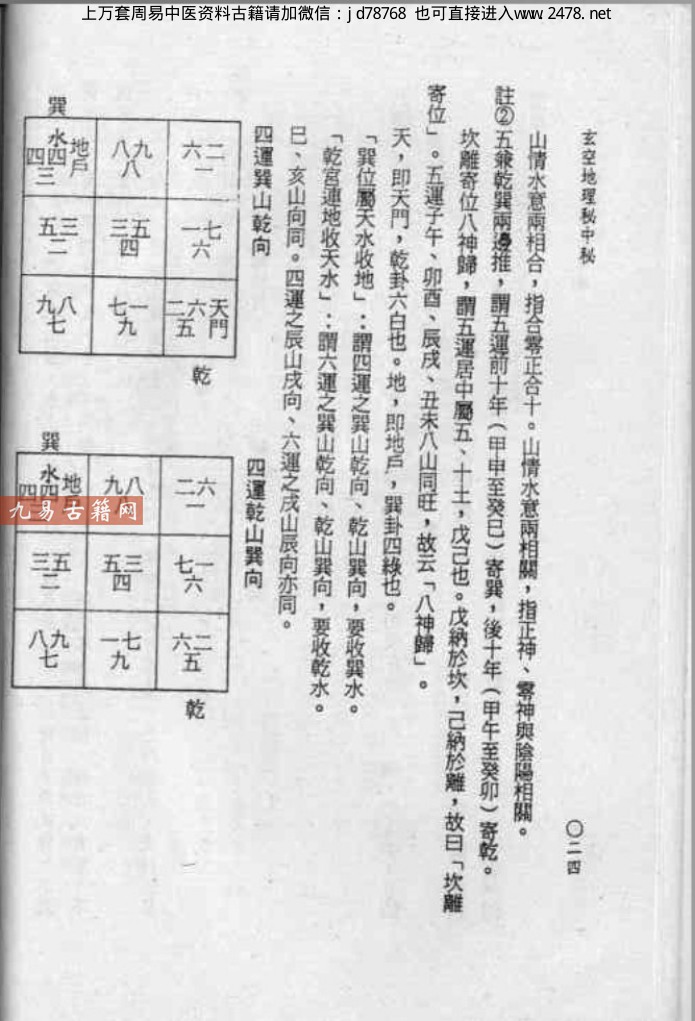 上万套周易中医资料古籍请加微信：jd78768 也可直接进入www.2478.net
玄空地理秘中秘
〇二四
山情水意兩相合，指合零正合十。山情水意兩相關，指正神、零神與陰陽相關。
註②五兼乾巽兩邊推，謂五運前十年（甲申至癸巳）寄巽，後十年（甲午至癸卯）寄乾。
坎離寄位八神歸，謂五運居中屬五、十土，戊己也。戊納於坎，己納於離，故曰「坎離
寄位」。五運子午、卯酉、辰戌、丑未八山同旺，故云「八神歸」。
天，即天門，乾卦六白也。地，即地戶，巽卦四綠也。
「巽位屬天水收地」：謂四運之巽山乾向、乾山巽向，要收巽水。
「乾宮運地收天水」：謂六運之巽山乾向、乾山巽向，要收乾水。
巳、亥山向同。四運之辰山戌向、六運之戌山辰向亦同。
四運巽山乾向
巽
水 地戶
四四 八九 六二
三 八 一
五三 三五 一七
二 四 六
九八 七一 二六 天門
七 九 五
乾
四運乾山巽向
巽
水 地
九八 二六
一
三五 五三 七一
二 四 六
八九 一七 六二
七 九 五
乾
九易古籍网